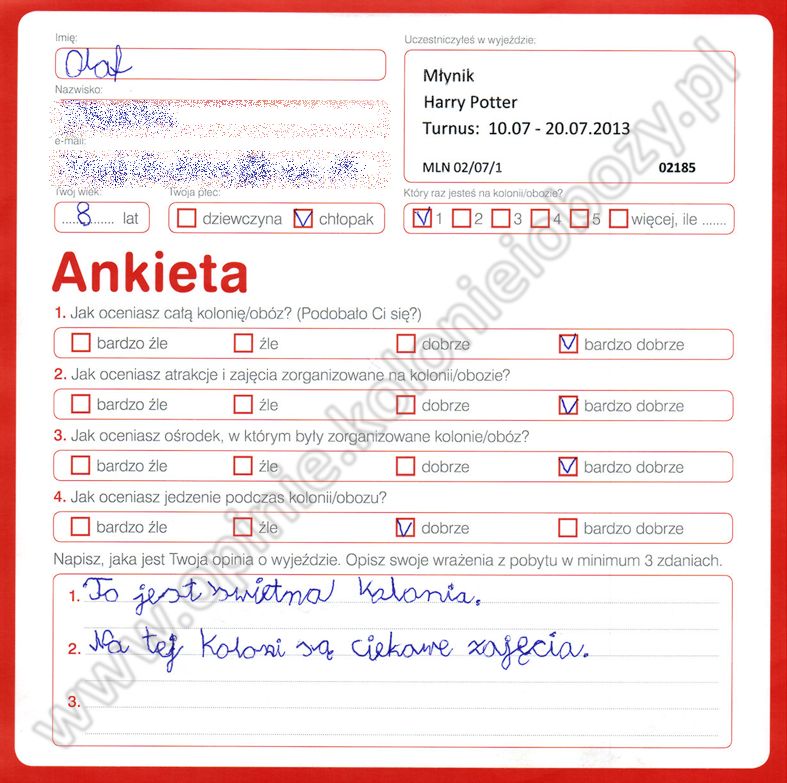 Imię:
Olaf
Nazwisko:
e-mail:
Twój wiek:
8 lat
Twoja płeć:
dziewczyna chłopak
Uczestniczyłeś w wyjeździe:
Młynik
Harry Potter
Turnus: 10.07 - 20.07.2013
MLN 02/07/1 02185
Który raz jesteś na kolonii/obozie?
1 2 3 4 5 więcej, ile .......
Ankieta
1. Jak oceniasz całą kolonię/obóz? (Podobało Ci się?)
bardzo źle źle dobrze bardzo dobrze
2. Jak oceniasz atrakcje i zajęcia zorganizowane na kolonii/obozie?
bardzo źle źle dobrze bardzo dobrze
3. Jak oceniasz ośrodek, w którym były zorganizowane kolonie/obóz?
bardzo źle źle dobrze bardzo dobrze
4. Jak oceniasz jedzenie podczas kolonii/obozu?
bardzo źle źle dobrze bardzo dobrze
Napisz, jaka jest Twoja opinia o wyjeździe. Opisz swoje wrażenia z pobytu w minimum 3 zdaniach.
1. To jest swietna kolonia.
2. Na tej koloni są ciekawe zajęcia.
3.
www.opinie.kolonieiobozy.pl